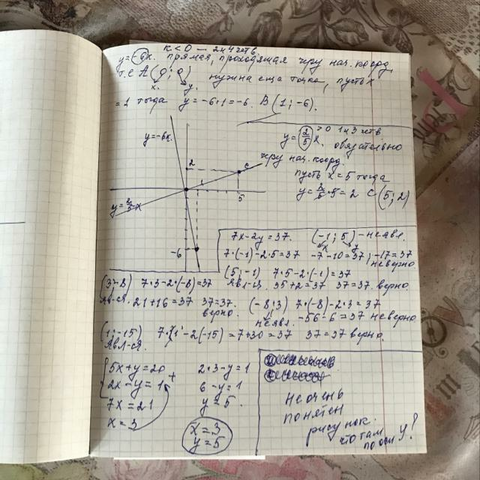 к<0 — 2и4 четв
y=-6x. прямая, проходящая чер нач. коорд.
т.е A(0;0) нужна еще точка, пусть x
x. y.
=1 тогда y=-6*1=-6. B(1;-6).
y=-6x.
y=2/5x. >0 1и3 четв
обязательно
чер нач. коорд.
пусть x=5 тогда
y=2/5·5=2 C(5;2)
2
C
1
5
y=2/5x
-6
7x-2y=37. (-1;5)-неявл.
x y
7*(-1)-2·5=37 -7-10=37; -17=37
неверно
(5;-1) 7·5-2·(-1)=37
явл-ся. 35+2=37 37=37. верно
(3;-8) 7·3-2·(-8)=37
яв-ся. 21+16=37 37=37.
верно.
(-8;3) 7*(-8)-2·3=37
неявл. -56-6=37 неверно
(1;-15) 7·1-2(-15)=7+30=37 37=37 верно.
явл-ся.
5x+y=20
+
2x-y=1
7x=21
x=3
2·3-y=1
6-y=1
y=5.
x=3
y=5
не очень
понятен
рисунок.
что там
по оси y?